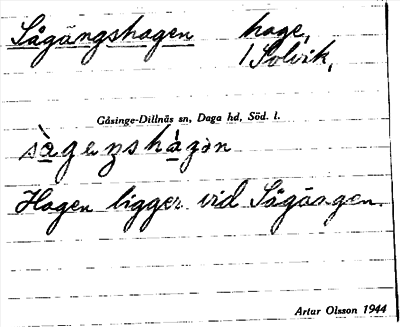 Sågängshagen hage,
/ Solvik,
Gåsinge-Dillnäs sn, Daga hd, Söd. l.
Hagen ligger vid Sågängen.
Artur Olsson 1944